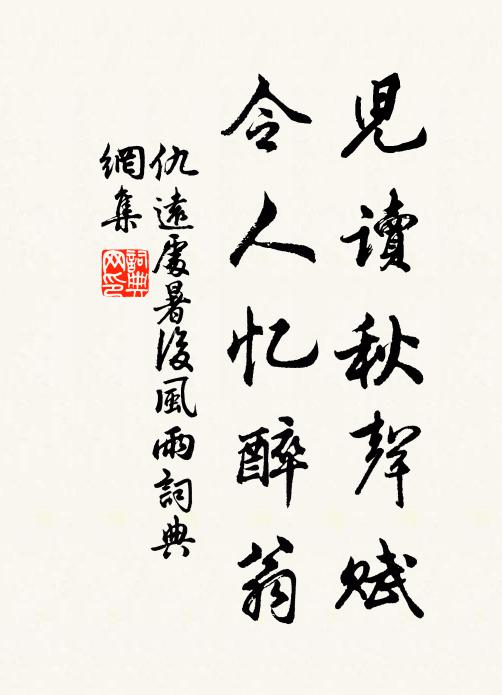 児讀秋聲赋
令人忆醉翁
仇遠處暑後風雨詞典
網集
詞典
网印